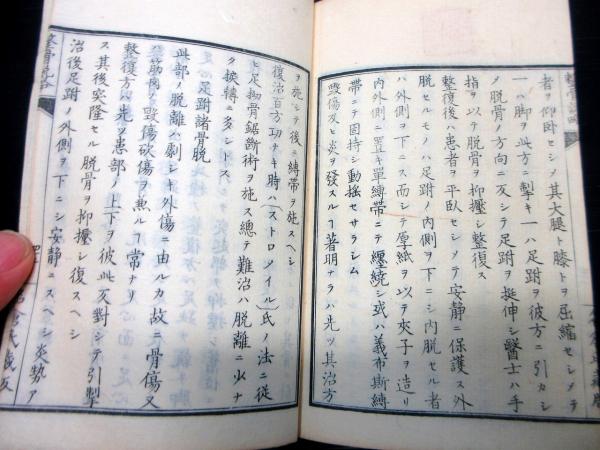 者ヲ仰臥セシメ其大腿ト膝トヲ屈縮セシメテ
一ハ脚ヲ此方ニ掣キ一ハ足跗ヲ彼方ニ引カシ
ノ脱骨ノ方向ニ反シテ足跗ヲ挺伸シ醫士ハ手
指ヲ以テ脱骨ヲ抑壓シ整復ス
整復後ハ患者ヲ平臥セシメテ安静ニ保護ス外
脱セルモノハ足跗ノ内側ヲ下ニシ内脱セル者
ハ外側ヲ下ニス而シテ厚紙ヲ以テ夾子ヲ造リ
内外側ニ置キ單縛帯ニテ纏繞シ或ハ義布斯縛
帯ニテ固持シ動揺セサラシム
毀傷及ヒ炎ヲ發スルヿ著明ナラハ先ツ其治方
ヲ施シテ後ニ縛帯ヲ施スヘシ
復治百方功ナキ時ハ(ストロマイル)氏ノ法ニ從
ヒ足拗骨鋸断術ヲ施ス總テ難治ハ脱離ニ少ナ
ク捩轉ニ多シトス
足跗諸骨脱
此部ノ脱離ハ劇シキ外傷ニ由ルカ故ニ骨傷又
筋肉ノ毀傷砍傷ヲ兼ルヿ常ナリ
整復方ハ先ツ患部ノ上下ヲ彼此反對シテ引掣
ス其後突隆セル脱骨ヲ抑壓シ復スヘシ
治後足跗ノ外側ヲ下ニシ安静ニスヘシ炎勢ア
整骨説略